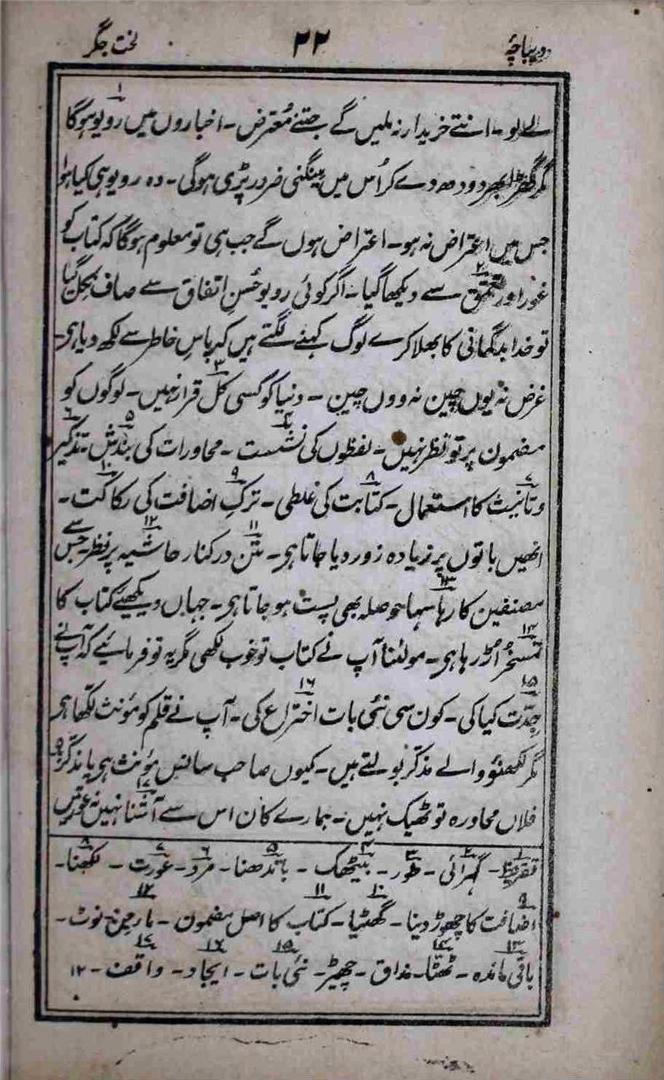 دیباچۂ ۲۲ لخت جگر
لے لو۔ اتنے خریدار نہ ملیں گے جتنے مُعترض۔ اخباروں میں ریویو ہوگا
مگر گھڑا بھر دودھ دے کر اُس میں مینگنی ضرور پڑی ہوگی۔ وہ ریویو ہی کیا ہوا
جس میں اعتراض نہ ہو۔ اعتراض ہوں گے جب ہی تو معلوم ہوگا کہ کتاب کو
غور اور تعمق سے دیکھا گیا۔ اگر کوئی ریویو حُسنِ اتفاق سے صاف بچل گیا
تو خدا بدگمانی کا بھلا کرے لوگ کہنے لگتے ہیں کہ پاسِ خاطر سے لکھ دیا ہی
غرض نہ یوں چین نہ ووں چین۔ دنیا کو کسی کل قرار نہیں۔ لوگوں کو
مضمون پر تو نظر نہیں۔ لفظوں کی نشست۔ محاورات کی بندش۔ تذکیر
و تانیث کا استعمال۔ کتابت کی غلطی۔ ترکِ اضافت کی رکاکت۔
انھیں باتوں پر زیادہ زور دیا جاتا ہی۔ متن درکنار حاشیہ پر نظر ہے جس سے
مصنفین کا رہا سہا حوصلہ بھی پست ہو جاتا ہی۔ جہاں دیکھئے کتاب کا
تمسخر اُڑ رہا ہی۔ مولٰنا آپ نے کتاب تو خوب لکھی مگر یہ تو فرمائیے کہ آپ نے
جدّت کیا کی۔ کون سی نئی بات اختراع کی۔ آپ نے قلم کو مؤنث لکھا ہی
مگر لکھنؤ والے مذکر بولتے ہیں۔ کیوں صاحب سانس مؤنث ہی یا مذکر؟
فلاں محاورہ تو ٹھیک نہیں۔ ہمارے کان اس سے آشنا نہیں نہ عورتیں
۔ گہرائی۔ طور۔ بیٹھک۔ باندھنا۔ مرد۔ عورت۔ لکھنا۔
اضافت کا چھوڑ دینا۔ گھٹیا۔ کتاب کا اصل مضمون۔ مارجن۔ نوٹ۔
باقی ماندہ۔ ٹھٹا۔ مذاق۔ چھیڑ۔ نئی بات۔ ایجاد۔ واقف۔ ۱۲